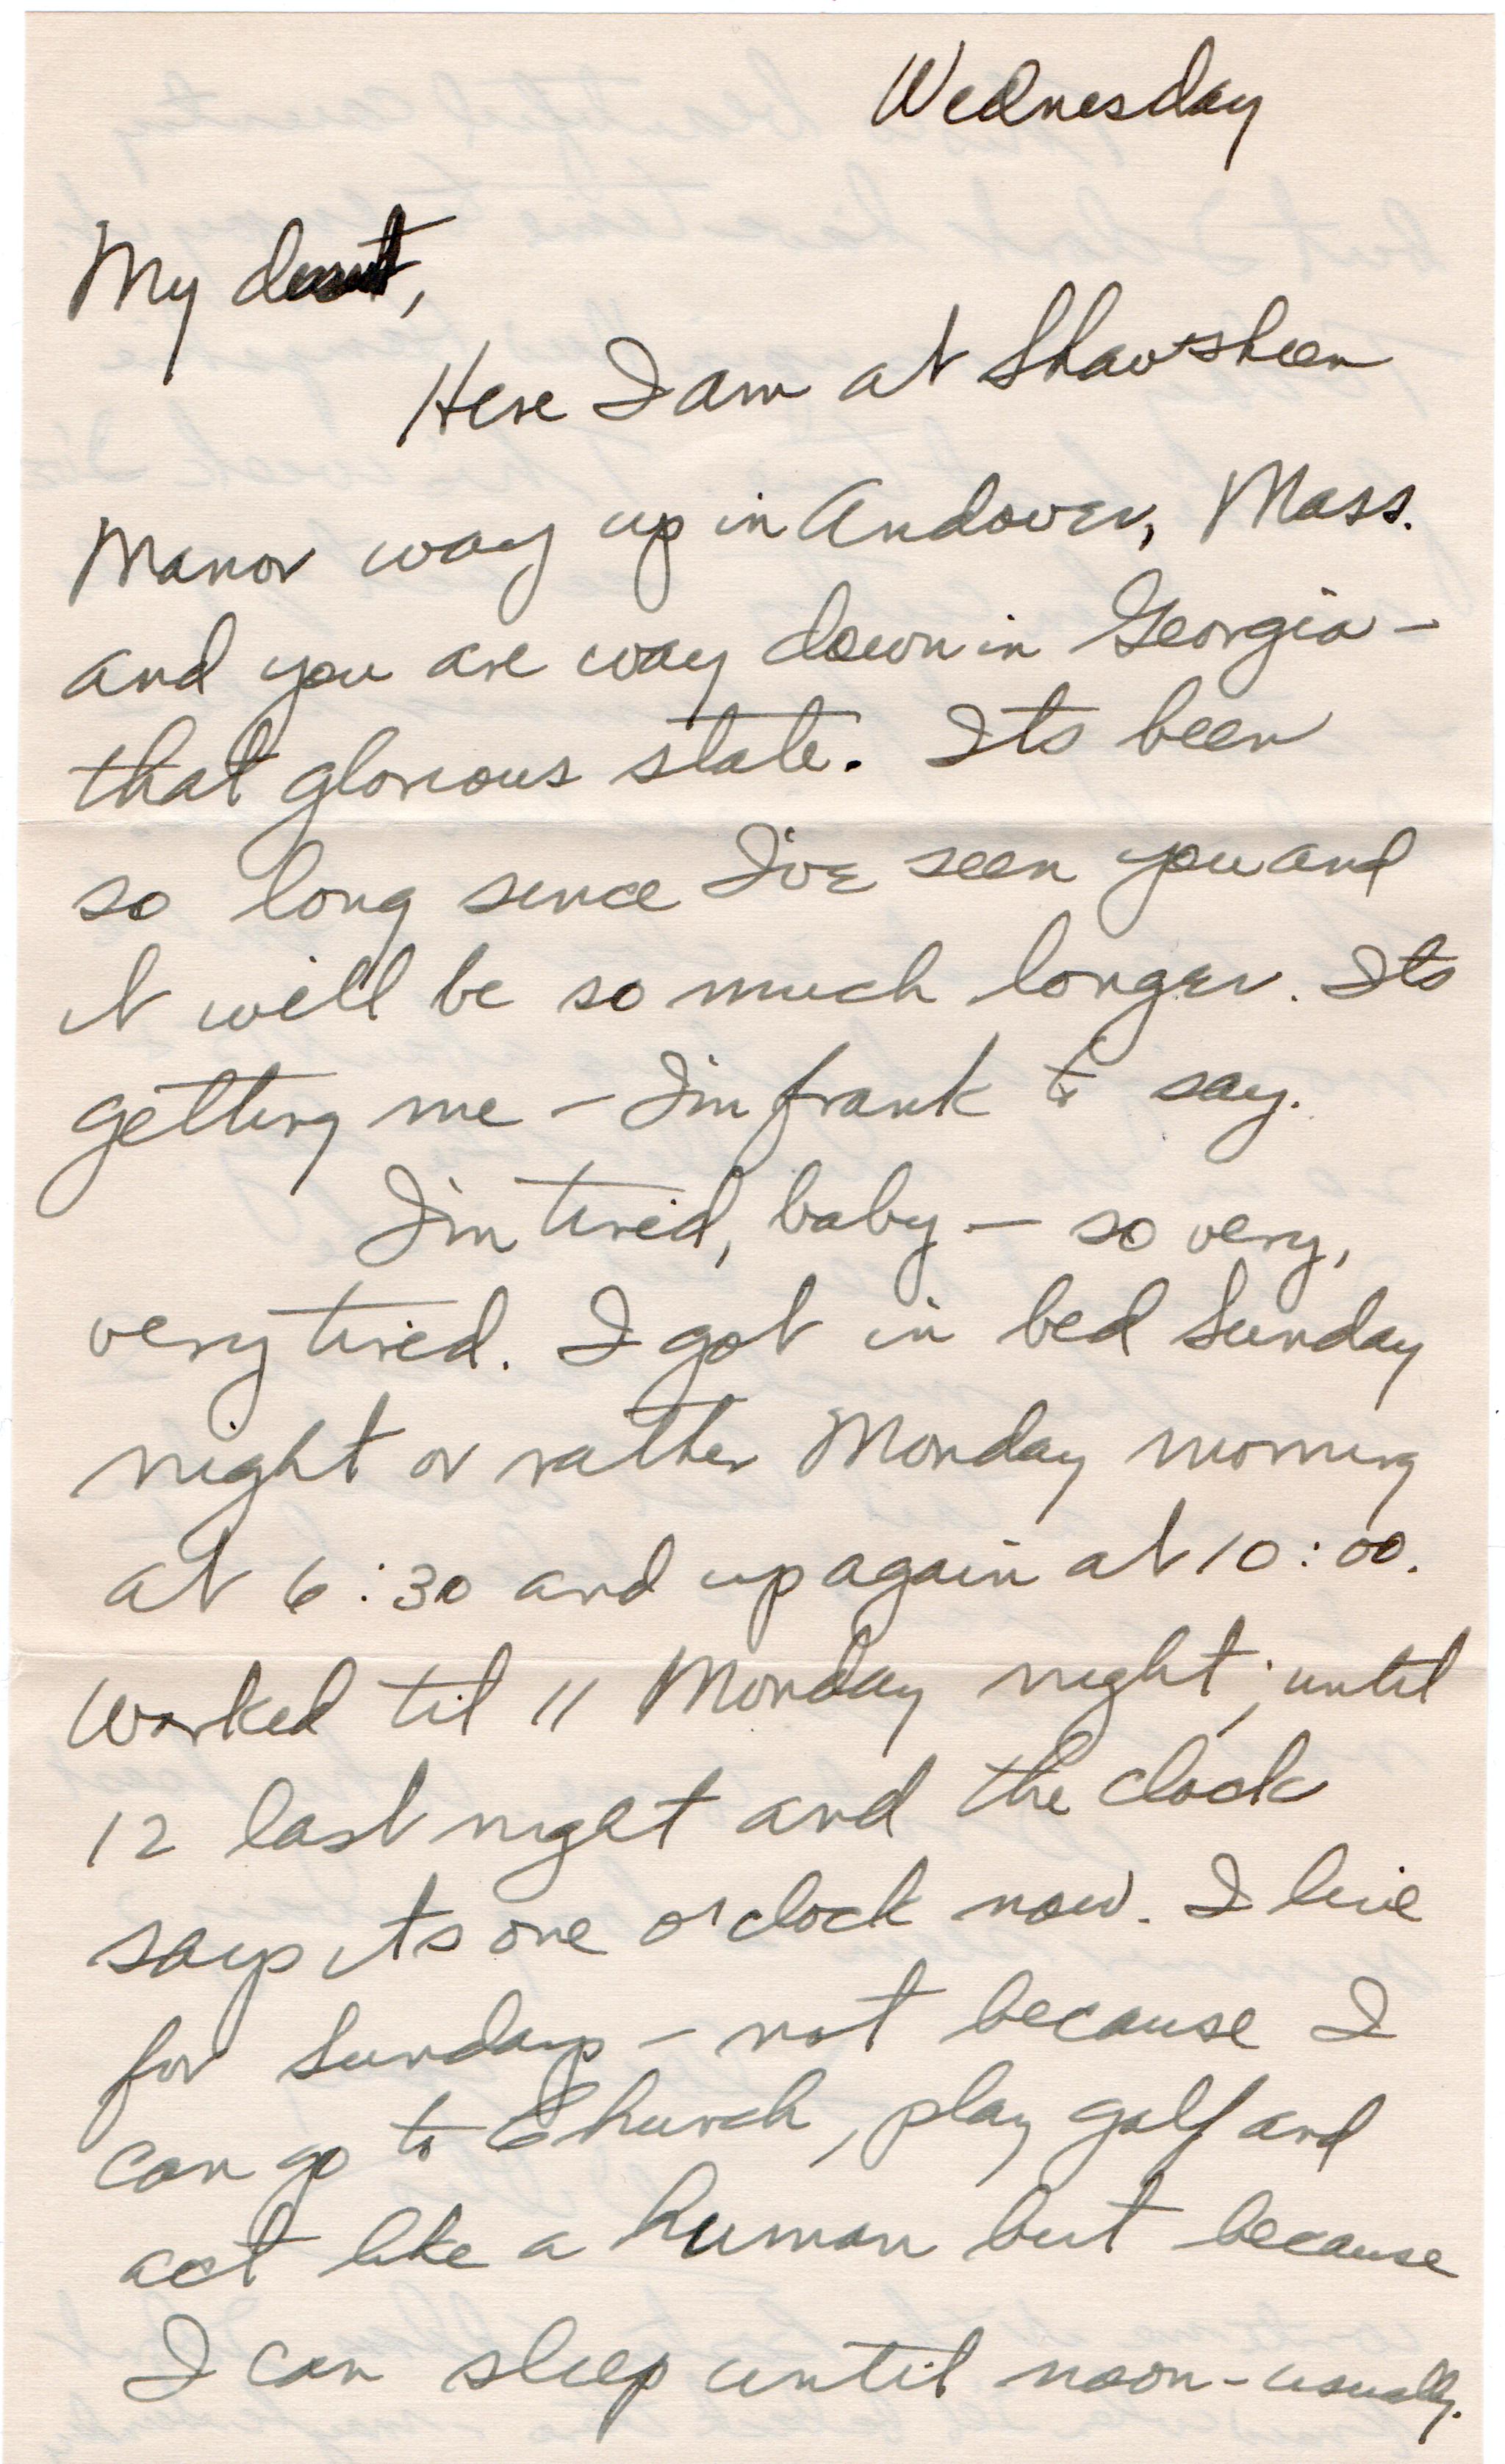 Wednesday
My dearest,
Here I am at Shawsheen
Manor way up in Andover, Mass.
and you are way down in Georgia —
that glorious state. Its been
so long since I've seen you and
it will be so much longer. Its
getting me — I'm frank to say.
I'm tired, baby — so very,
very tired. I got in bed Sunday
night or rather Monday morning
at 6:30 and up again at 10:00.
Worked til 11 Monday night; until
12 last night and the clock
says its one o'clock now. I live
for Sundays — not because I
can go to Church, play golf and
act like a human but because
I can sleep until noon - usually.